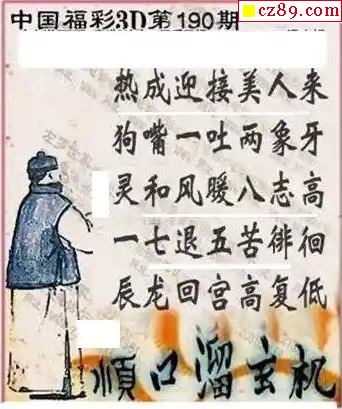 cz89.com
中国福彩3D第190期
热成迎接美人来
狗嘴一吐两象牙
灵和风暖八志高
一七退五苦徘徊
辰龙回宫高复低
順口溜玄机